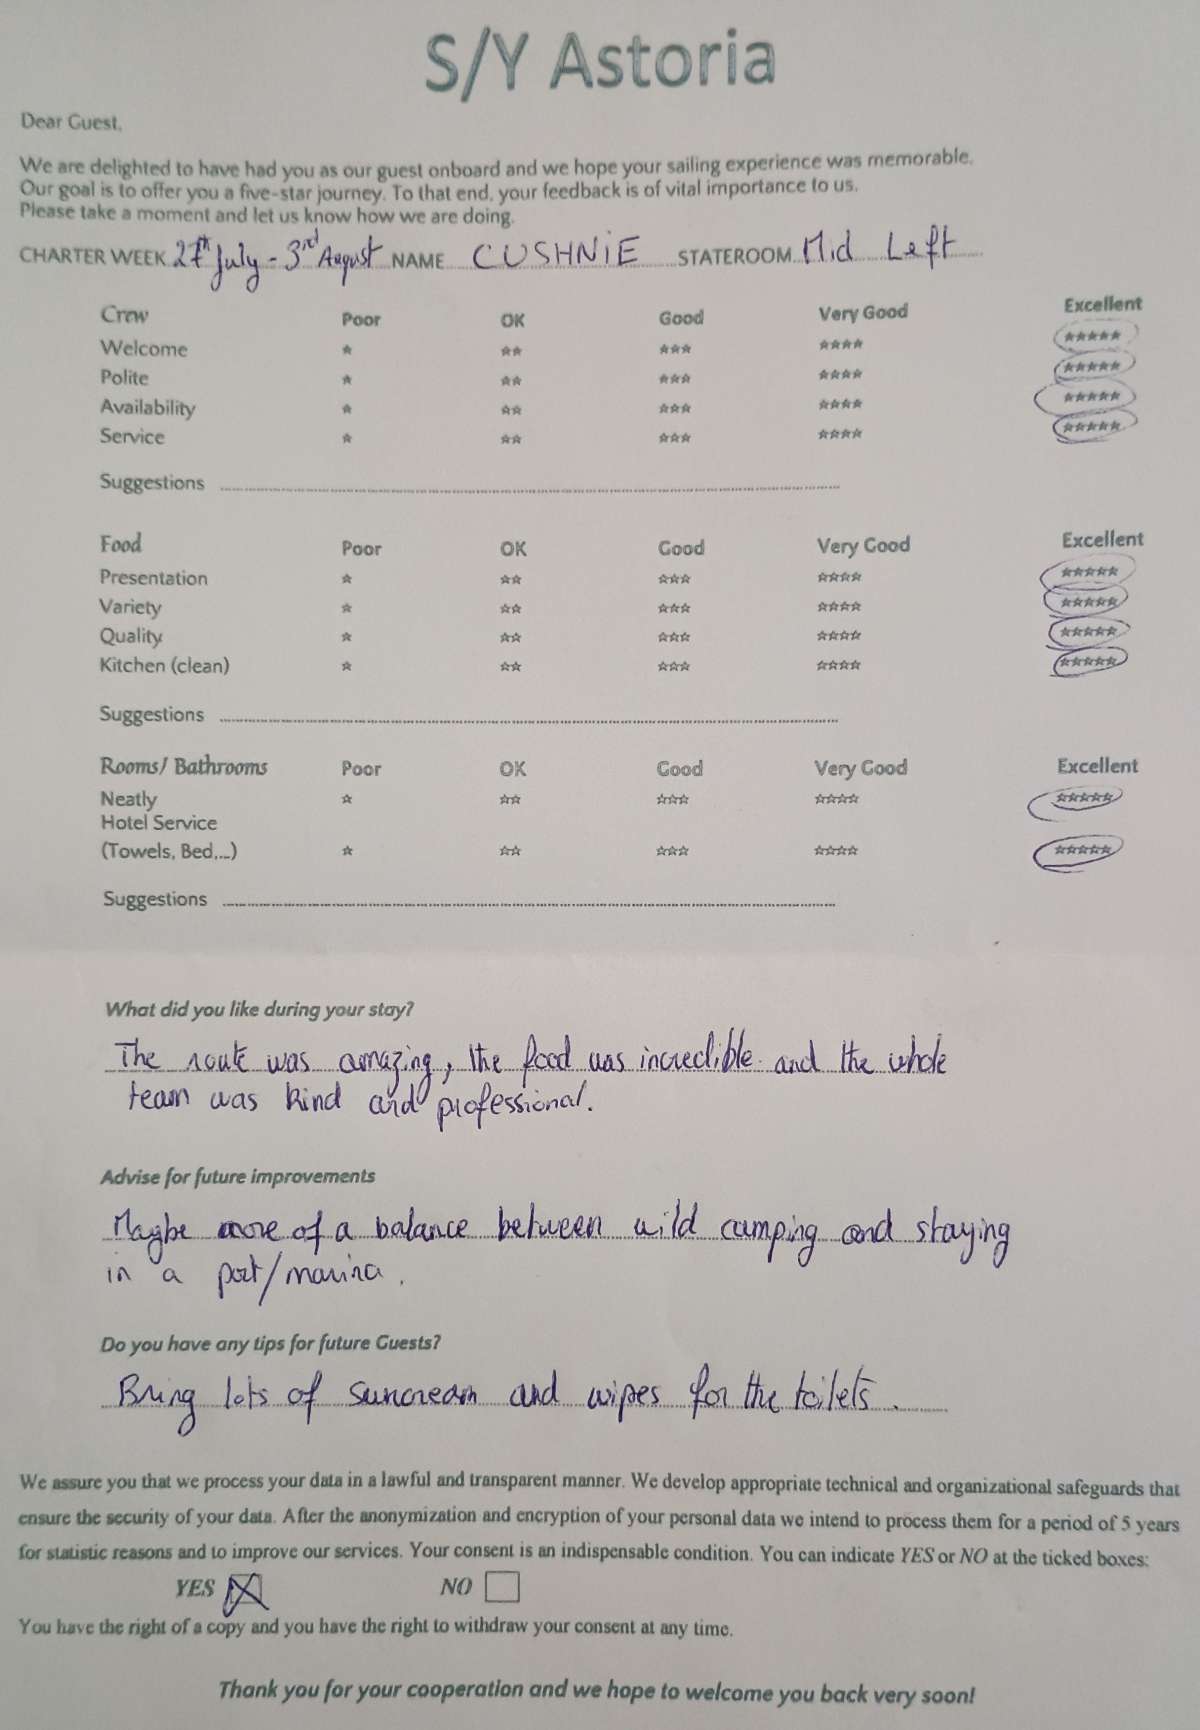 S/Y Astoria
Dear Guest,
We are delighted to have had you as our guest onboard and we hope your sailing experience was memorable.
Our goal is to offer you a five-star journey. To that end, your feedback is of vital importance to us.
Please take a moment and let us know how we are doing.
CHARTER WEEK 27th July - 3rd August NAME CUSHNiE STATEROOM Mid Left
Crew Poor OK Good Very Good Excellent
Welcome ☆ ☆☆ ☆☆☆ ☆☆☆☆ ☆☆☆☆☆
Polite ☆ ☆☆ ☆☆☆ ☆☆☆☆ ☆☆☆☆☆
Availability ☆ ☆☆ ☆☆☆ ☆☆☆☆ ☆☆☆☆☆
Service ☆ ☆☆ ☆☆☆ ☆☆☆☆ ☆☆☆☆☆
Suggestions
Food Poor OK Good Very Good Excellent
Presentation ☆ ☆☆ ☆☆☆ ☆☆☆☆ ☆☆☆☆☆
Variety ☆ ☆☆ ☆☆☆ ☆☆☆☆ ☆☆☆☆☆
Quality ☆ ☆☆ ☆☆☆ ☆☆☆☆ ☆☆☆☆☆
Kitchen (clean) ☆ ☆☆ ☆☆☆ ☆☆☆☆ ☆☆☆☆☆
Suggestions
Rooms/ Bathrooms Poor OK Good Very Good Excellent
Neatly ☆ ☆☆ ☆☆☆ ☆☆☆☆ ☆☆☆☆☆
Hotel Service
(Towels, Bed,...) ☆ ☆☆ ☆☆☆ ☆☆☆☆ ☆☆☆☆☆
Suggestions
What did you like during your stay?
The route was amazing, the food was incredible and the whole
team was kind and professional.
Advise for future improvements
Maybe more of a balance between wild camping and staying
in a port/marina.
Do you have any tips for future Guests?
Bring lots of suncream and wipes for the toilets.
We assure you that we process your data in a lawful and transparent manner. We develop appropriate technical and organizational safeguards that
ensure the security of your data. After the anonymization and encryption of your personal data we intend to process them for a period of 5 years
for statistic reasons and to improve our services. Your consent is an indispensable condition. You can indicate YES or NO at the ticked boxes:
YES ☒ NO ☐
You have the right of a copy and you have the right to withdraw your consent at any time.
Thank you for your cooperation and we hope to welcome you back very soon!